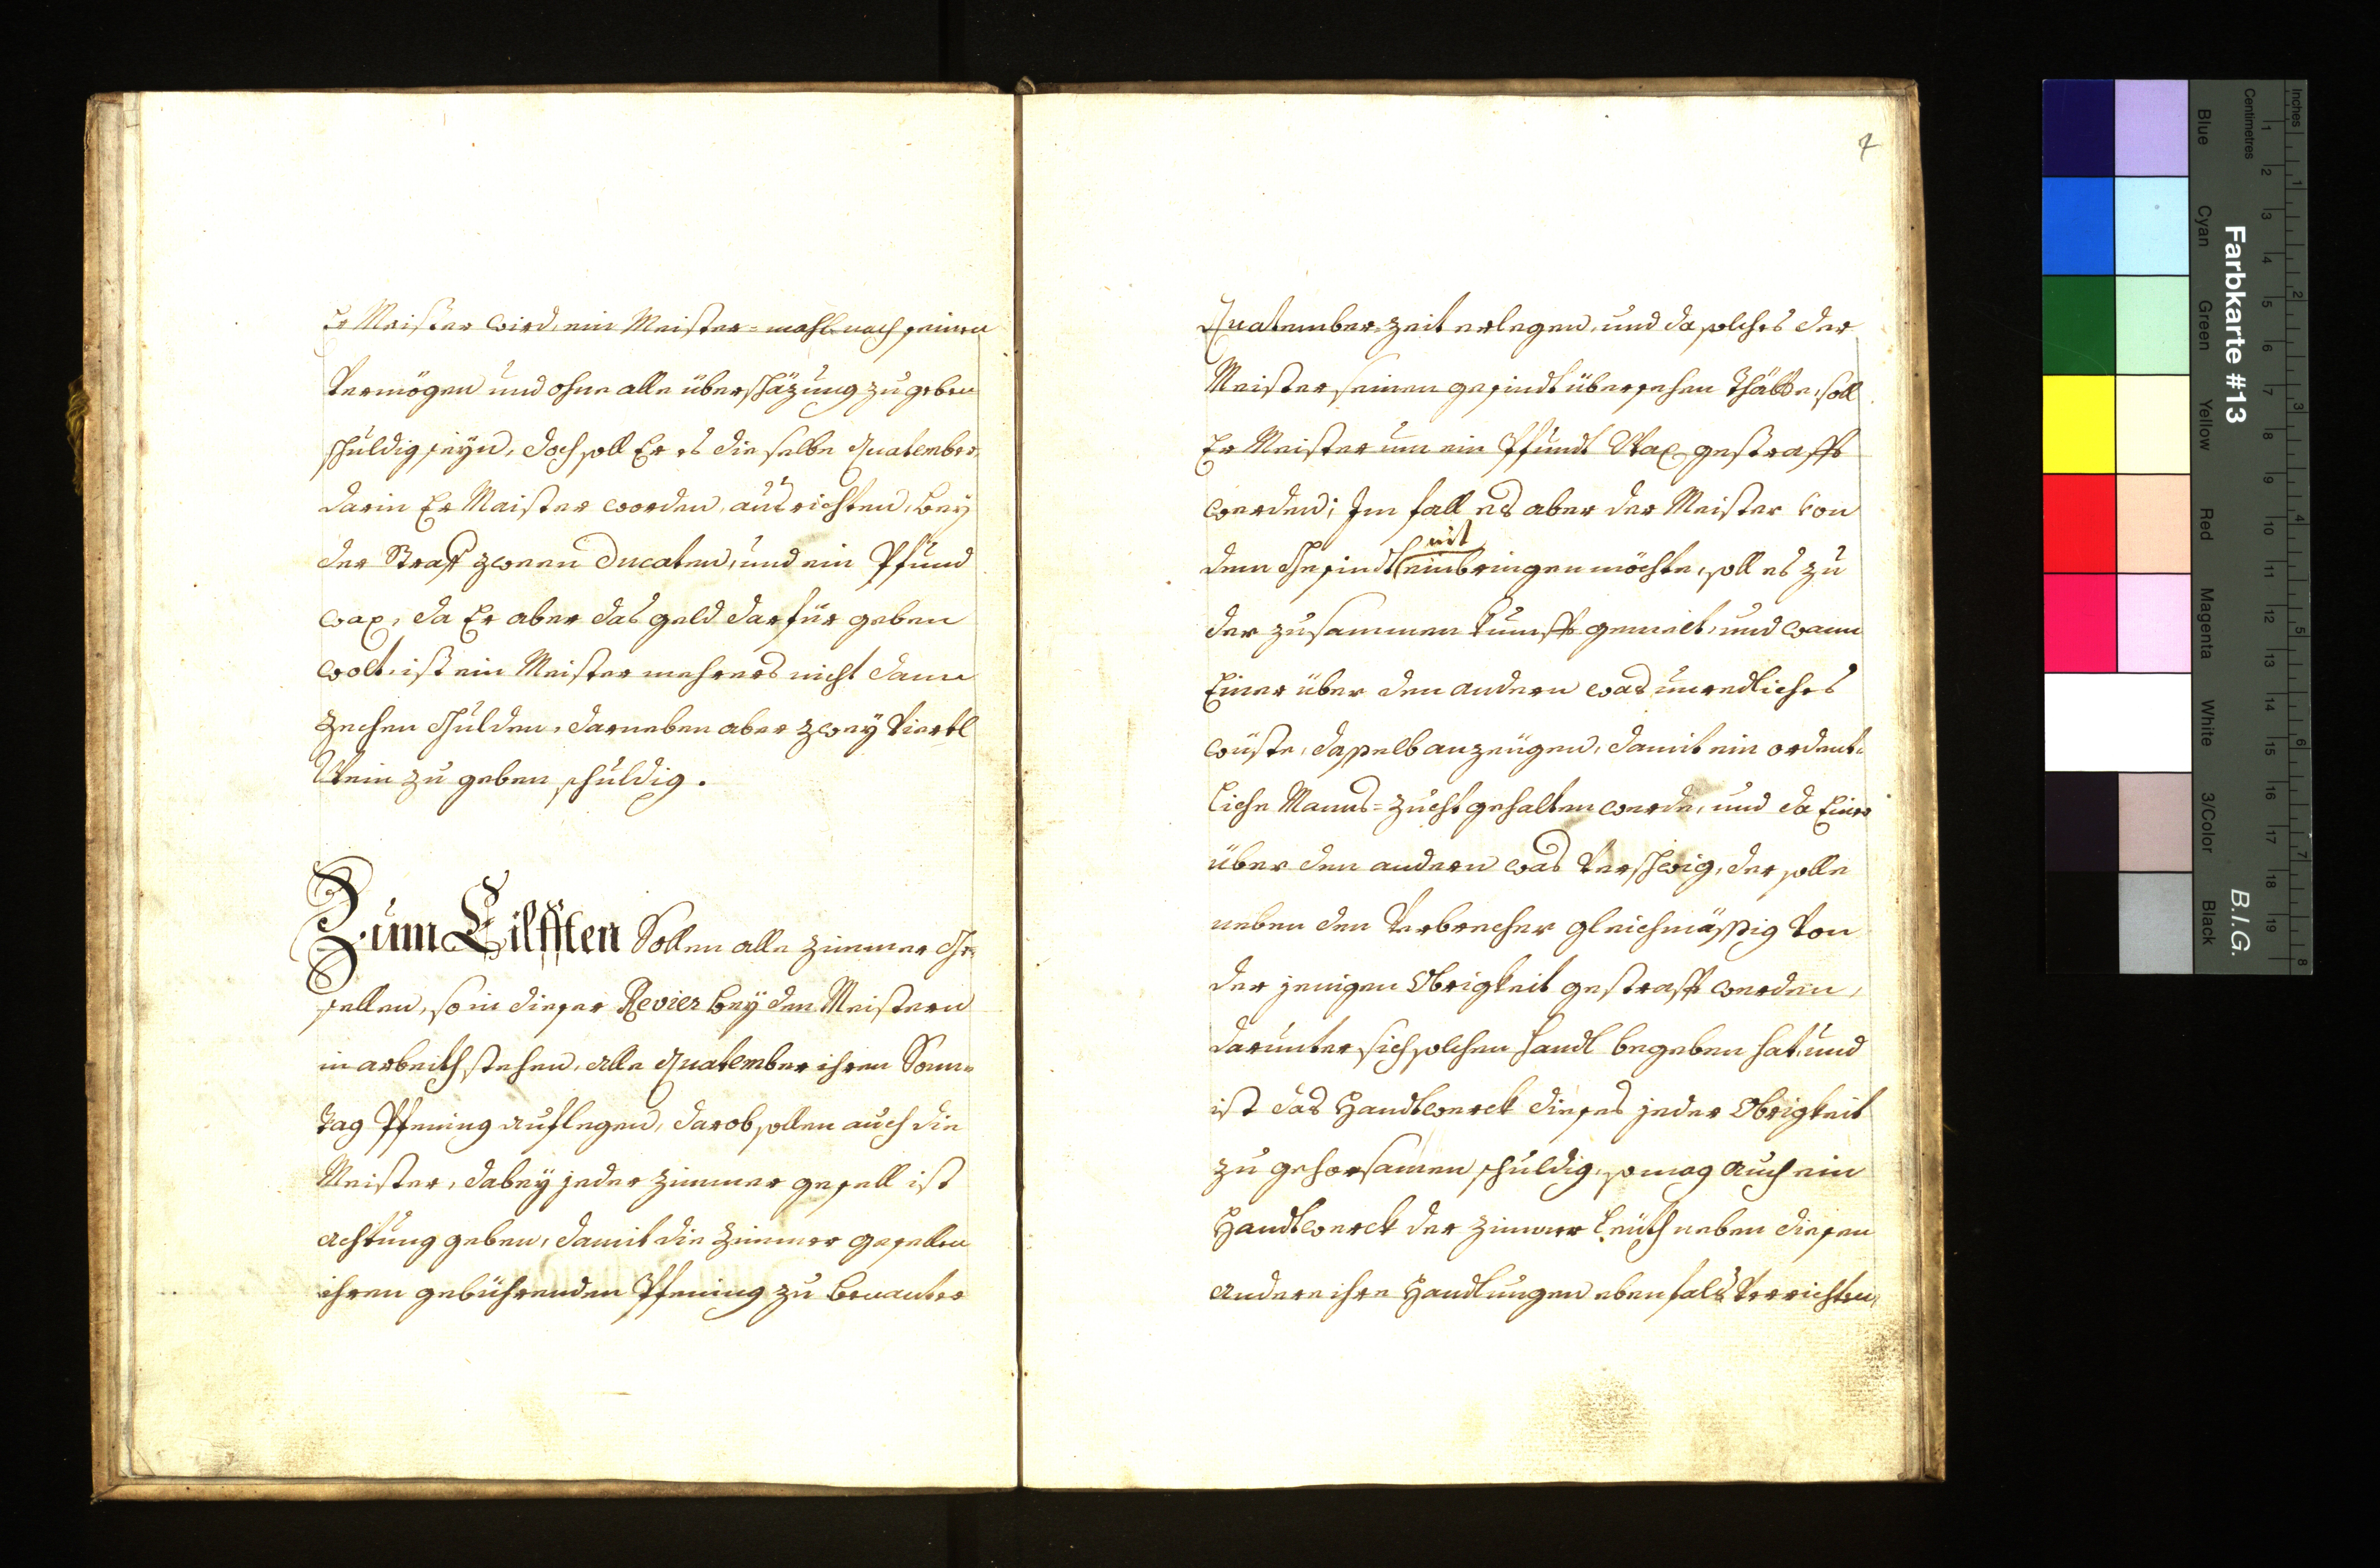 Er Meister wird, ein Meister=mahl nach seinen
Vermögen und ohne alle überschäzung zu geben
schuldig seyn, doch soll Er es die selbe Quatember,
darin Er Maister worden, ausrichten, bey
der Straff zween Ducaten, und ein Pfund
wax, da Er aber das geld darfür geben
wolt, ist ein Meister mehrers nicht dann
zechen Gulden, darneben aber zwey Viertl
Wein zu geben schuldig.
Zum Eilfften Sollen alle zimmer Ge¬
sellen, so in dieser Revier bey den Meistern
in arbeith stehen, alle Quatember ihren Sonn¬
tag Pfening auflegen, darob sollen auch die
Meister, dabey jeder zimmer gesell ist
achtung geben, damit die zimmer gesellen
ihren gebührenden Pfening zu benanter
7
Quatember zeit erlegen, und da solches der
Meister seinen gesindt übersehen thätte, soll
Er Meister um ein Pfundt Wax gestrafft
werden; Im fall es aber der Meister von
nit
dem Gesindt einbringen möchte, soll es zu
der zusammen kunfft gemelt, und wann
Einer über den andern was unredliches
wuste, dasselb anzeügen, damit ein ordent¬
liche Manns=zucht gehalten werde, und da Einer
über den andern was verschwig, der solle
neben den Verbrecher gleichmässig von
der jenigen Obrigkeit gestrafft werden,
darunter sich solchen handl begeben hat, und
ist das Handtwerck dieses jeder Obrigkeit
zu gehorsamen schuldig, so mag auch ein
Handtwerck der zimmer Leüth neben diesen
andere ihre Handlungen ebenfals verrichten,
Inches
Centimetres
1 2 3 4 5 6 7 8 9 10 11 12 13 14 15 16 17 18 19
1 2 3 4 5 6 7 8
Farbkarte #13
B.I.G.
Blue
Cyan
Green
Yellow
Red
Magenta
White
3/Color
Black